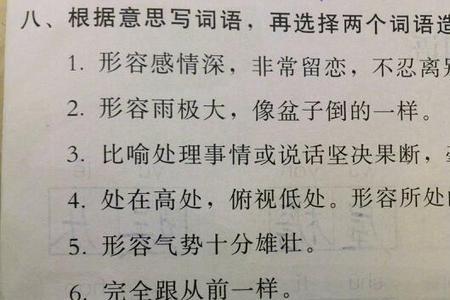 八、根据意思写词语，再选择两个词语造
1. 形容感情深，非常留恋，不忍离别
2. 形容雨极大，像盆子倒的一样。
3. 比喻处理事情或说话坚决果断，
4. 处在高处，俯视低处。形容所处
5. 形容气势十分雄壮。
6. 完全跟从前一样。